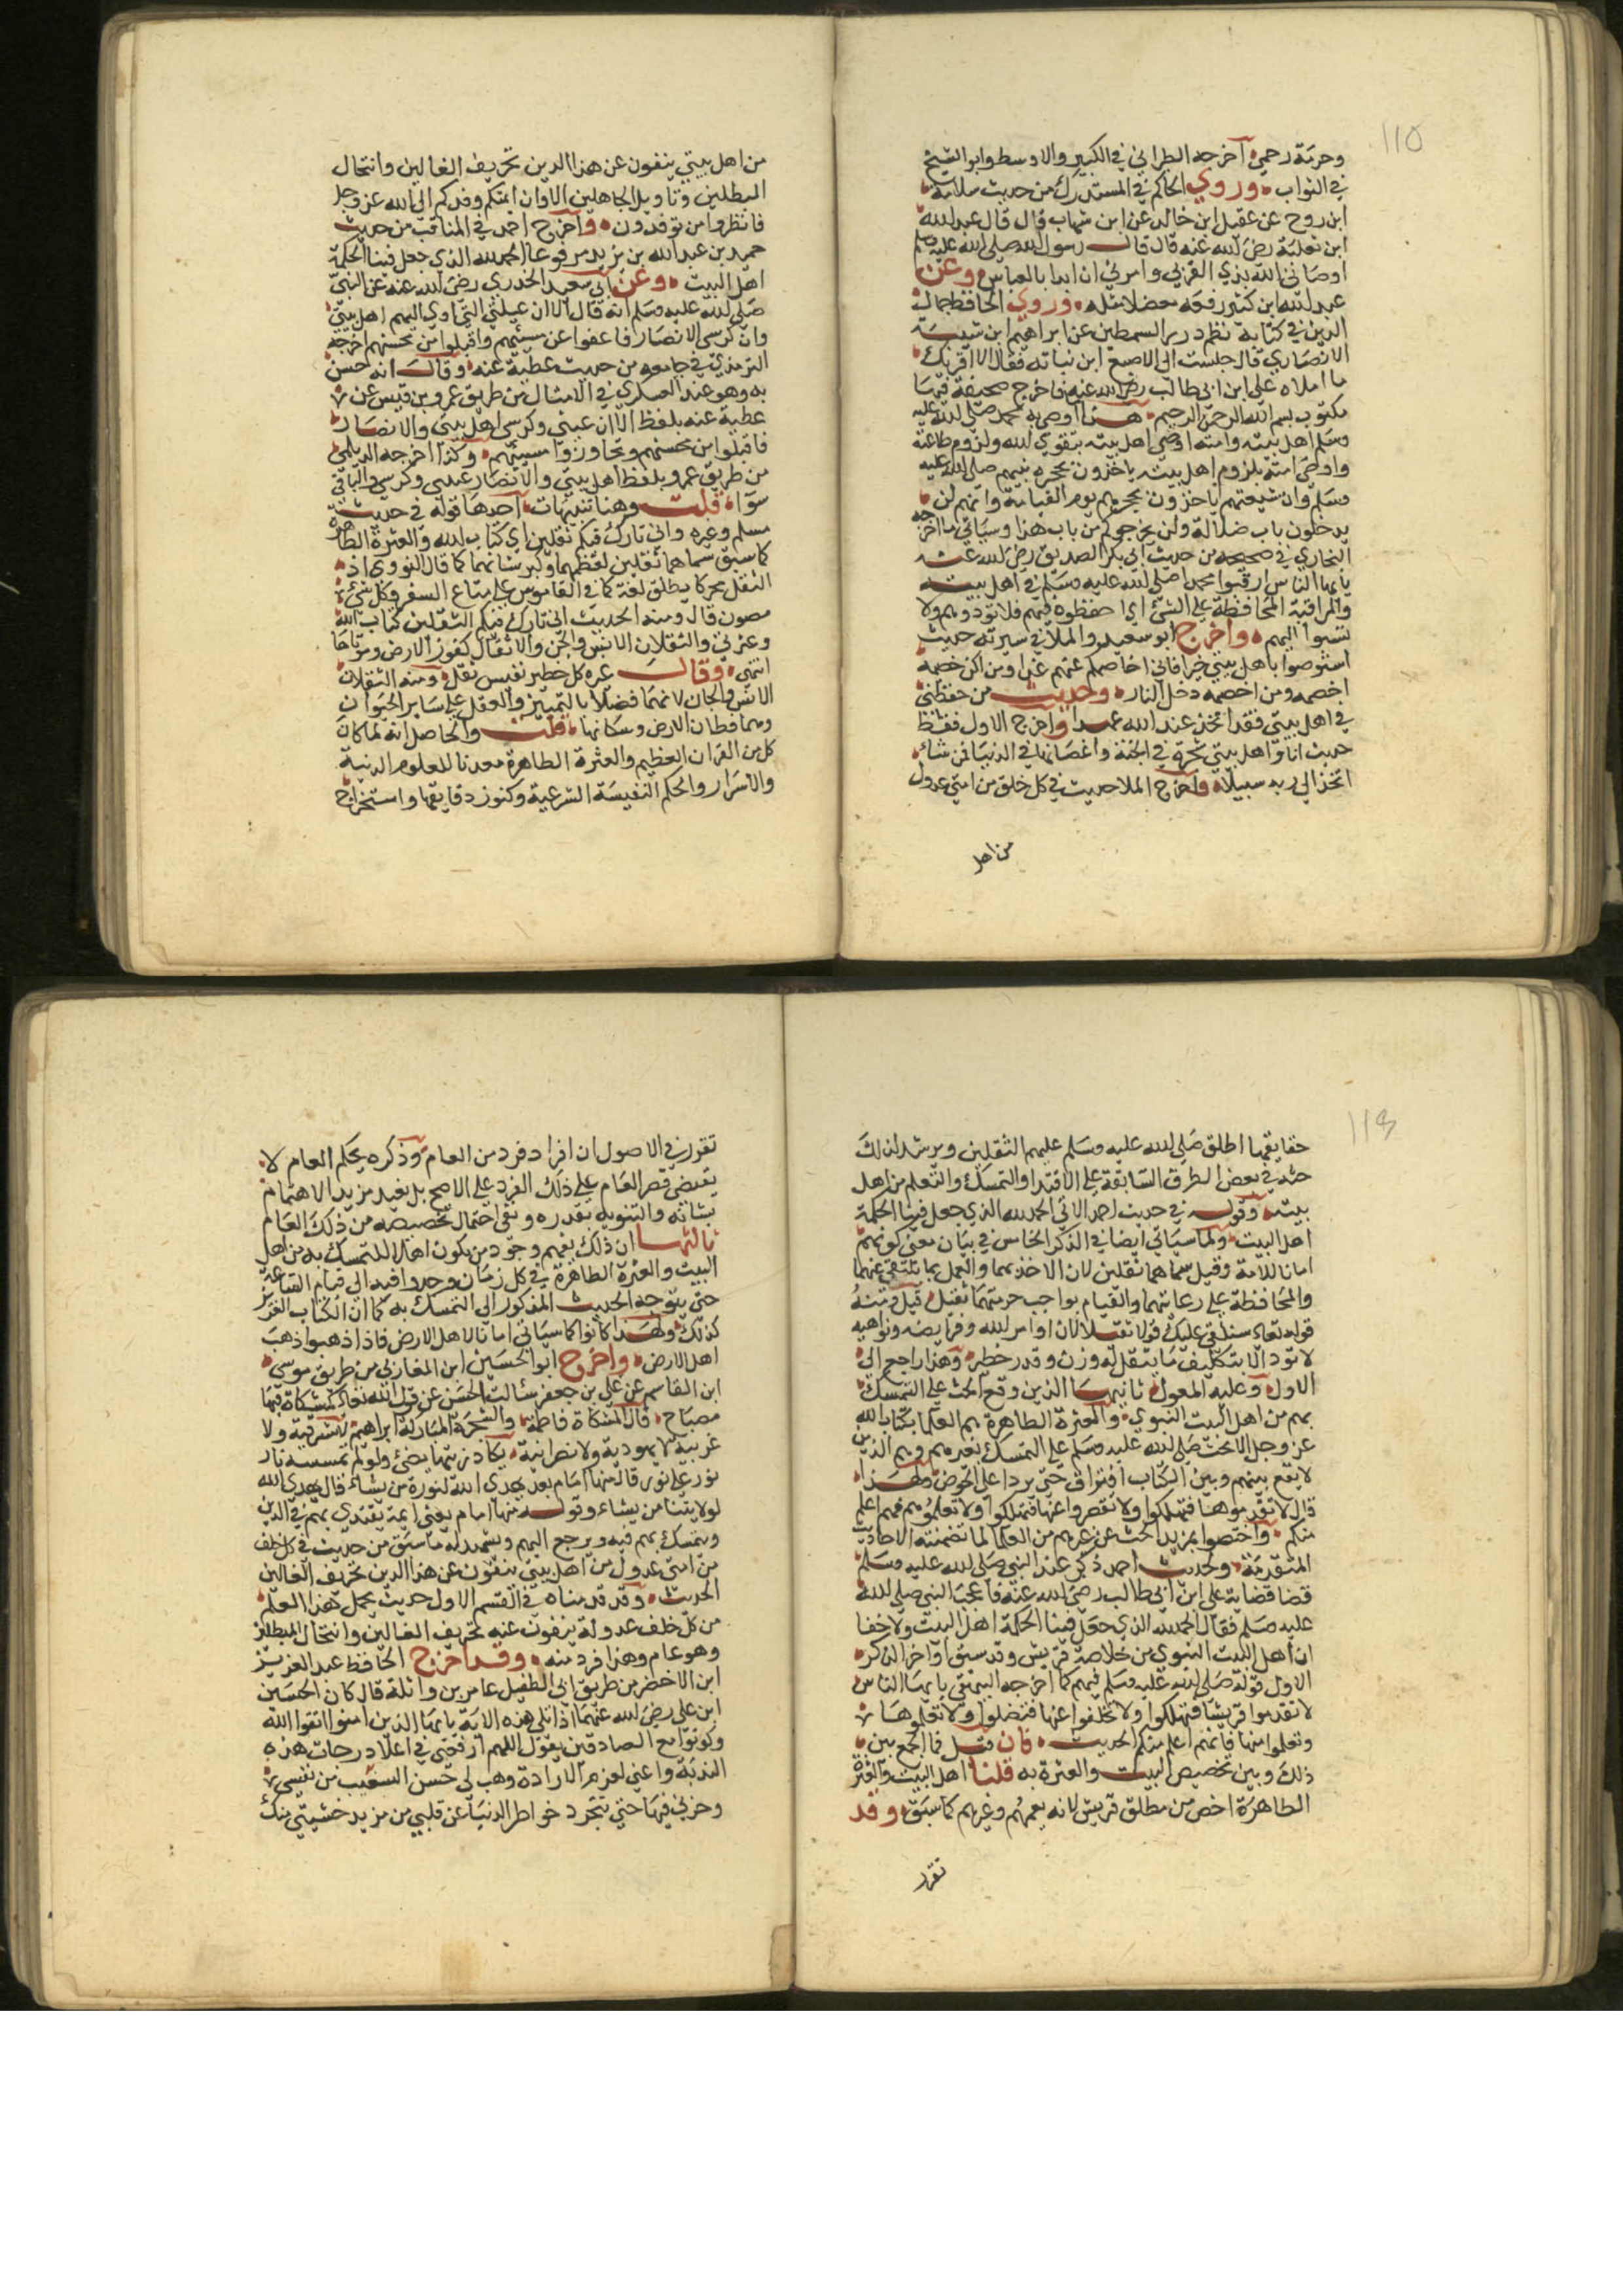 115
وحرمة رحمي اخرجه الطبراني في الكبير والاوسط وابو الشيخ
في الثواب وروي الحاكم في المستدرك من حديث سلامة
ابن روح عن عقيل ابن خالد عن ابن شهاب قال قال عبد الله
ابن ثعلبة رضي الله عنه قال قال رسول الله صلى الله عليه وسلم
اوصاني الله بذي القربي وامرني ان ابدا بالعباس وعن
عبد الله ابن كثير رفعه معضلا مثله وروي الحافظ جمال
الدين في كتابه نظم درر السمطين عن ابراهيم ابن شيبة
الانصاري قال جلست الى الاصبغ ابن نباتة فقال الا اقرئك
ما املاه علي ابن ابي طالب رضي الله عنه فاخرج صحيفة فيها
مكتوب بسم الله الرحمن الرحيم هذا ما اوصي به محمد صلى الله عليه
وسلم اهل بيته وامته اوصي اهل بيته بتقوي الله ولزوم طاعته
واوصي امته بلزوم اهل بيته ياخذون بحجزة نبيهم صلى الله عليه
وسلم وان شيعتهم ياخذون بحجزهم يوم القيامة وانهم لن
يدخلوكم باب ضلالة ولن يخرجوكم من باب هدا وسياتي ما اخرجه
البخاري في صحيحه من حديث ابي بكر الصديق رضي الله عنه
يا ايها الناس ارقبوا محمدا صلى الله عليه وسلم في اهل بيته
والمراقبة المحافظة علي الشئ اي احفظوه فيهم فلا تؤدوهم ولا
تسيوا اليهم واخرج ابو سعيد والملا في سيرته حديث
استوصوا باهل بيتي خيرا فاني اخاصمكم عنهم غدا ومن اكن خصمه
اخصمه ومن اخصمه دخل النار وحديث من حفظني
في اهل بيتي فقد اتخذ عند الله عهدا واخرج الاول فقط
حديث انا واهل بيتي شجرة في الجنة واغصانها في الدنيا فمن شاء
اتخذ الي ربه سبيلا واخرج الملا حديث في كل خلق من امتي عدول
من اهل
من اهل بيتي ينفون عن هذا الدين تحريف الغالين وانتحال
المبطلين وتاويل الجاهلين الا وان ائمتكم وفدكم الي الله عز وجل
فانظروا من توفدون واخرج احمد في المناقب من حديث
حميد بن عبد الله بن يزيد مرفوعا الحمد لله الذي جعل فينا الحكمة
اهل البيت وعن ابي سعيد الخدري رضي الله عنه عن النبي
صلى الله عليه وسلم انه قال الا ان عيبتي التي اوي اليهم اهل بيتي
وان كرسي الانصار فاعفوا عن مسيئهم واقبلوا من محسنهم اخرجه
الترمذي في جامعه من حديث عطية عنه وقال انه حسن
به وهو عند العسكري في الامثال من طريق عمرو بن قيس عن
عطية عنه بلفظ الا ان عيبتي وكرسي اهل بيتي والانصار
فاقبلوا من محسنهم وتجاوزوا مسيئهم وكذا اخرجه الديلمي
من طريق عمرو بلفظ اهل بيتي والانصار عيبتي وكرسي والباقي
سوا قلت وهنا تنبيهات احدها قوله في حديث
مسلم وغيره واني تارك فيكم ثقلين اي كتاب الله والعترة الطاهرة
كما سبق سماهما ثقلين لعظمهما وكبر شانهما كما قال النووي اذ
الثقل محركا يطلق لغة كما في القاموس علي متاع السفر وكل شئ
مصون قال ومنه الحديث اني تارك فيكم الثقلين كتاب الله
وعترتي والثقلان الانس والجن والاثقال كنوز الارض وموتاها
انتهي وقال غيره كل خطير نفيس ثقل ومنه الثقلان
الانس والجان لانهما فضلا بالتمييز والعقل علي ساير الحيوان
وهما قطان الارض وسكانها قلت والحاصل انه لما كان
كل من القران العظيم والعثرة الطاهرة معدنا للعلوم الدنية
والاسرار والحكم النفيسة الشرعية وكنوز دقايقها واستخراج
حقايقها اطلق صلى الله عليه وسلم عليهم الثقلين ويرشد لذلك
حثه في بعض الطرق السابقة علي الاقتدا والتمسك والتعلم من اهل
بيته وقوله في حديث احمد الاتي الحمد لله الذي جعل فينا الحكمة
اهل البيت ولما سياتي ايضا في الذكر الخامس في بيان معني كونهم
امانا للامة وقيل سماهما ثقلين لان الاخذ بهما والعمل بما يتلقي عنهما
والمحافظة علي رعايتهما والقيام بواجب حرمتهما ثقيل قيل ومنه
قوله تعالي سنلقي عليك قولا ثقيلا لان اوامر الله وفرايضه ونواهيه
لا تود الا بتكليف ما يثقل له وزن وقدر خطير وهذا راجع الي
الاول وعليه المعول ثانيهما الذين وقع الحث علي التمسك
بهم من اهل البيت النبوي والعترة الطاهرة هم العلما بكتاب الله
عز وجل اذ لا يحث صلى الله عليه وسلم علي التمسك بغيرهم وهم الذين
لا يقع بينهم وبين الكتاب افتراق حتي يردا علي الحوض ولهذا
قال لا تقدموهما فتهلكوا ولا تقصروا عنها فتهلكوا ولا تعلموهم فهم اعلم
منكم واختصوا بمزيد الحث عن غيرهم من العلما لما تضمنته الاحاديث
المتقدمة ولحديث احمد ذكر عند النبي صلى الله عليه وسلم
قضا قضا به علي ابن ابي طالب رضي الله عنه فاعجب النبي صلى الله
عليه وسلم فقال الحمد لله الذي جعل فينا الحكمة اهل البيت ولا خفا
ان اهل البيت النبوي من خلاصة قريش وقد سبق اواخر الذكر
الاول قوله صلى الله عليه وسلم فيهم كما اخرجه البيهقي يا ايها الناس
لا تقدموا قريشا فتهلكوا ولا تخلفوا عنها فتضلوا ولا تعلموها
وتعلموا منها فانهم اعلم منكم الحديث فان قيل فما الجمع بين
ذلك وبين تخصيص البيت والعترة به قلنا اهل البيت والعترة
الطاهرة اخص من مطلق قريش لانه يعمهم وغيرهم كما سبق وقد
تقرر
تقرر في الاصول ان افراد فرد من العام وذكره بحكم العام لا
يقتضي قصر العام علي ذلك الفرد علي الاصح بل يفيد مزيد الاهتمام
بشانه والتنويه بقدره ونفي احتمال تخصيصه من ذلك العام
ثالثها ان ذلك يفهم وجود من يكون اهلا للتمسك به من اهل
البيت والعترة الطاهرة في كل زمان وجدوا فيه الي قيام الساعة
حتي يتوجه الحديث المذكور الي التمسك به كما ان الكتاب العزيز
كذلك ولهذا كانوا كما سياتي امانا لاهل الارض فاذا ذهبوا ذهب
اهل الارض واخرج ابو الحسين ابن المغازلي من طريق موسى
ابن القاسم عن علي بن جعفر سالت الحسن عن قول الله تعالي كمشكاة فيها
مصباح قال المشكاة فاطمة والشجرة المباركة ابراهيم لا شرقية ولا
غربية لا يهودية ولا نصرانية يكاد زيتها يضئ ولو لم تمسسه نار
نور علي نور قال منها امام بعد يهدي الله لنوره من يشاء قال يهدي الله
لولايتنا من يشاء وقوله منها امام يعني ايمة يقتدي بهم في الدين
ويتمسك بهم فيه ويرجع اليهم ويشهد له ما سبق من حديث في كل خلف
من امتي عدول من اهل بيتي ينفون عن هذا الدين تحريف الغالين
الحديث وقد قدمناه في القسم الاول حديث يحمل هذا العلم
من كل خلف عدوله ينفون عنه تحريف الغالين وانتحال المبطلين
وهو عام وهذا فرد منه وقد اخرج الحافظ عبد العزيز
ابن الاخضر من طريق ابي الطفيل عامر بن واثلة قال كان الحسين
ابن علي رضي الله عنهما اذا تلي هذه الاية يا ايها الذين امنوا اتقوا الله
وكونوا مع الصادقين يقول اللهم ارفعني في اعلا درجات هذه
الندبة واعني لعزم الارادة وهب لي حسن من نفسي
وخذني فيها حتي تتجرد خواطر الدنيا عن قلبي من مزيد خشيتي منك